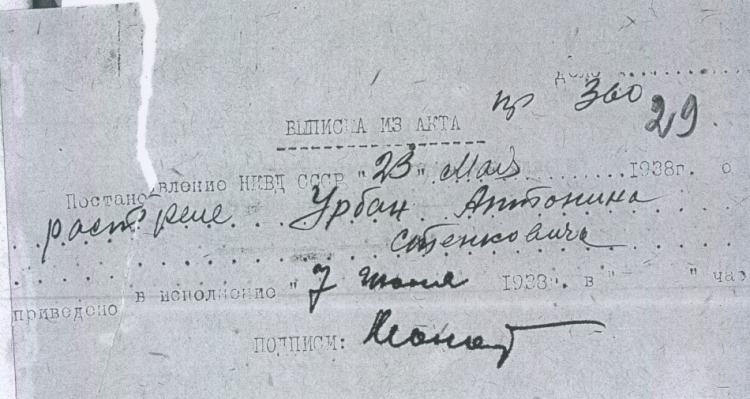 дело
пр 360
29.
ВЫПИСКА ИЗ АКТА
Постановление НКВД СССР "23" мая 1938г. о
расстреле Урбан Антонина
Стенковича
приведено в исполнение "7 июня 1938г. в " " час
ПОДПИСИ: